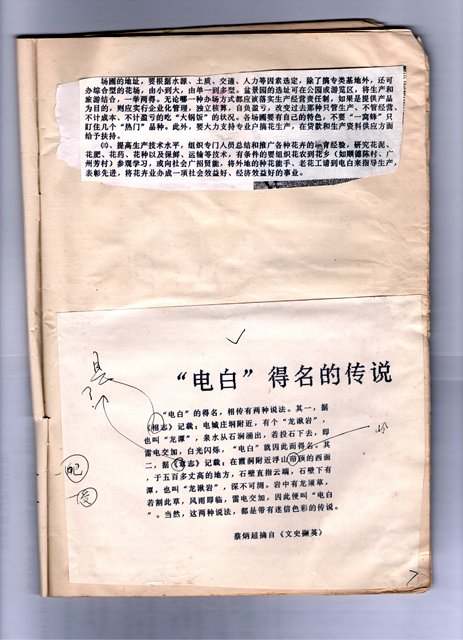 场圃的地址，要根据水源、土质、交通、人力等因素选定，除了搞专类基地外，还可
办综合型的花场，由小到大，由单一到多型。盆景园的选址可在公园或游览区，将生产和
旅游结合，一举两得。无论哪一种办场方式都应该落实生产经营责任制，如果是提供产品
为目的，则应实行企业化管理，独立核算，自负盈亏，改变过去那种只管生产、不管经营、
不计成本、不计盈亏的吃“大锅饭”的状况。各场圃要有自己的特色，不要“一窝蜂”只
盯住几个“热门”品种。此外，要大力支持专业户搞花生产，在贷款和生产资料供应方面
给予扶持。
提高生产技术水平，组织专门人员总结和推广各种花卉的培育经验，研究花泥、
花肥、花药、花种以及保鲜、运输等技术，有条件的要组织花农到花乡（如顺德陈村、广
州芳村）参观学习，或向社会广招贤能，将外地的种花能手、老花工请到电白来指导生产，
表彰先进，将花卉业办成一项社会效益好、经济效益好的事业。
“电白”得名的传说
“电白”的得名，相传有两种说法。其一，据
《相志》记载：电城庄垌附近，有个“龙湫岩”
也叫“龙潭”，泉水从石洞涌出，若投石下去，即
雷电交加，白光闪烁，“电白”就因此而得名。其
二，据《志》记载：在霞洞附近浮山顶的西面
，于五百多丈高的地方，石壁直指云端，石壁下有
潭，也叫“龙湫岩”，深不可测。岩中有龙须草，
若割此草，风雨即临，雷电交加，因此便叫“电白
”。当然，这两种说法，都是带有迷信色彩的传说。
蔡炳超摘自《文史撷英》
县
岭